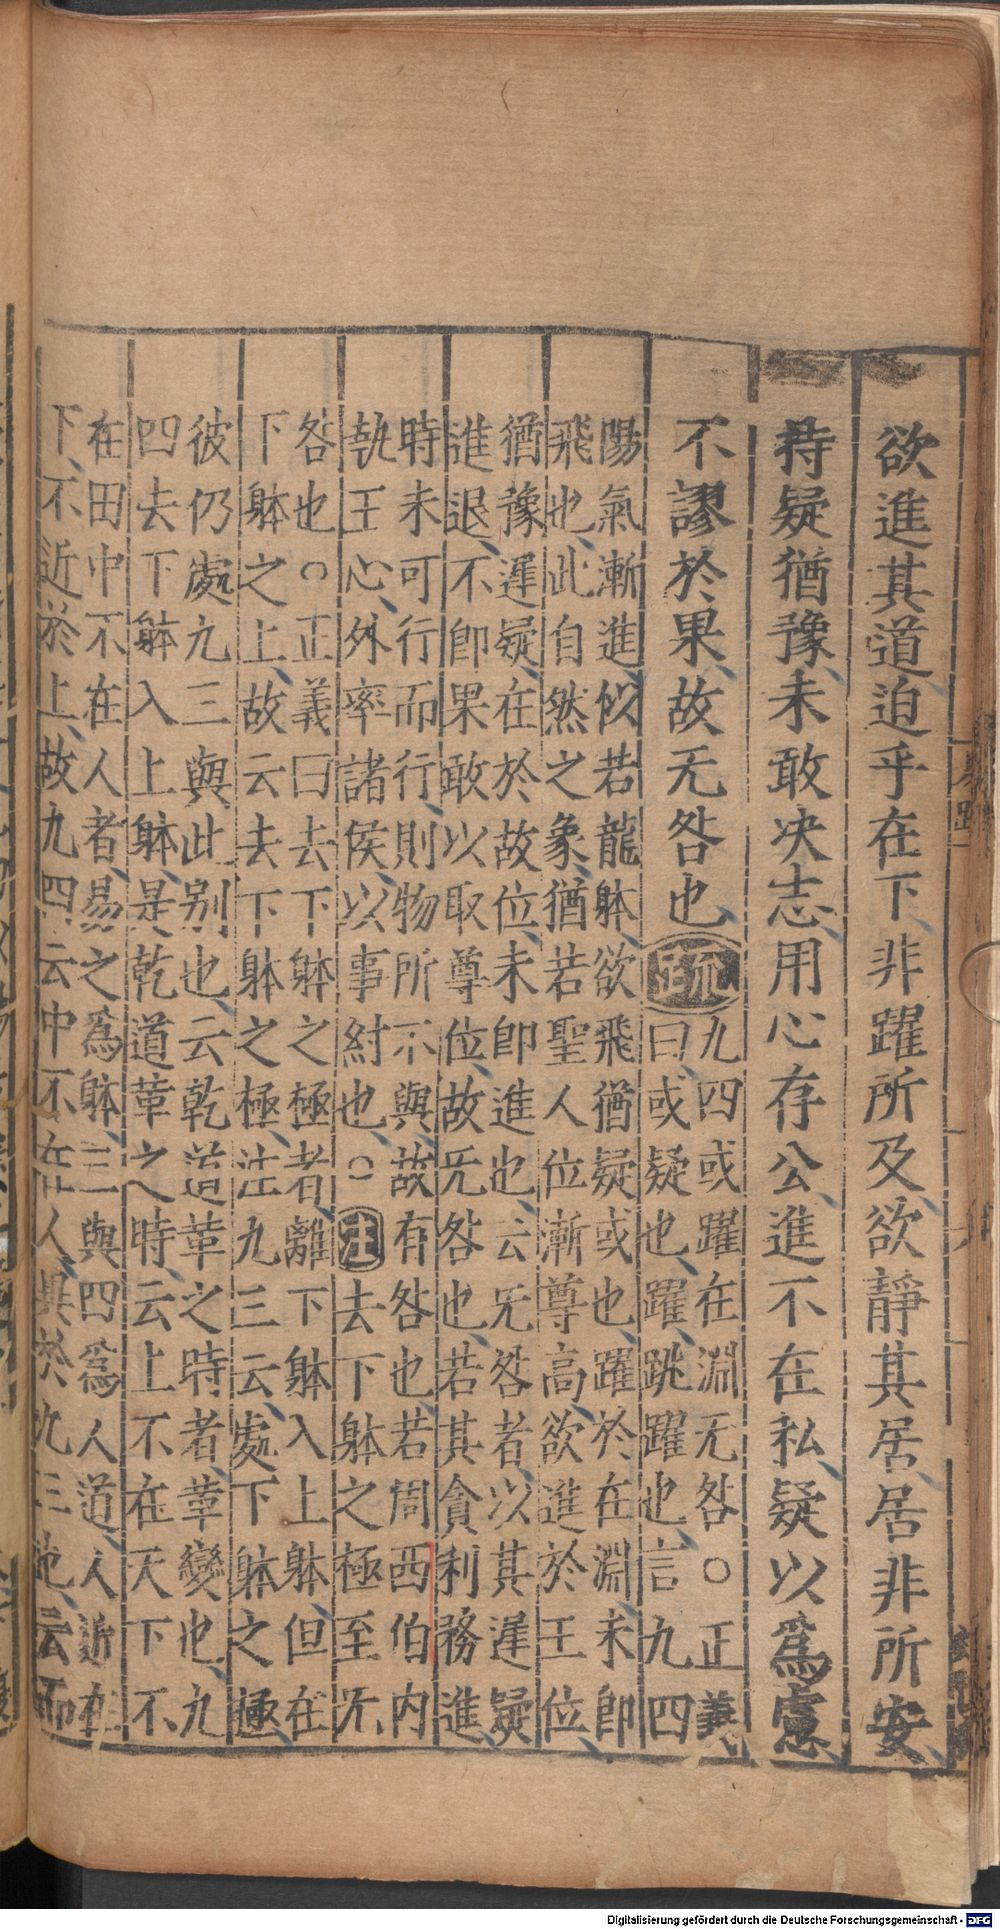 欲進其道迫乎在下非躍所及欲靜其居居非所安
持疑猶豫未敢决志用心存公進不在私疑以爲慮
不謬於果故无咎也
疏
九四或躍在淵无咎○正義
曰或疑也躍跳躍也言九四
陽氣漸進似若龍躰欲飛猶疑或也躍於在淵未卽
飛也此自然之象猶若聖人位漸尊高欲進於王位
猶豫遲疑在於故位未卽進也云旡咎者以其遲疑
進退不卽果敢以取尊位故旡咎也若其貪利務進
時未可行而行則物所不與故有咎也若周西伯内
執王心外率諸侯以事紂也○注去下躰之極至旡
咎也○正義曰去下躰之極者離下躰入上躰但在
下躰之上故云去下躰之極注九三云處下躰之極
彼仍處九三與此别也云乾道革之時者革變也九
四去下躰入上躰是乾道革之時云上不在天下不
在田中不在人者易之爲躰三與四爲人道人近在
下不近於上故九四云中不在人異於九三也云而
Digitalisierung gefördert durch die Deutsche Forschungsgemeinschaft - DFG